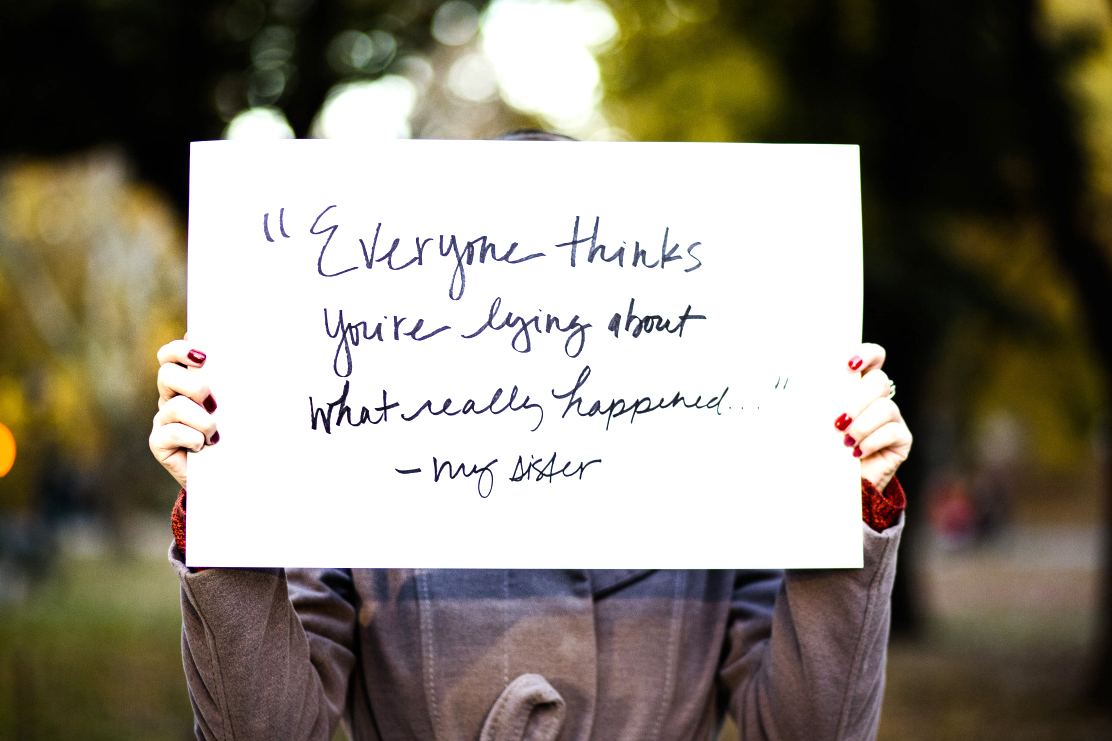 "Everyone thinks
you're lying about
what really happened..."
- my sister